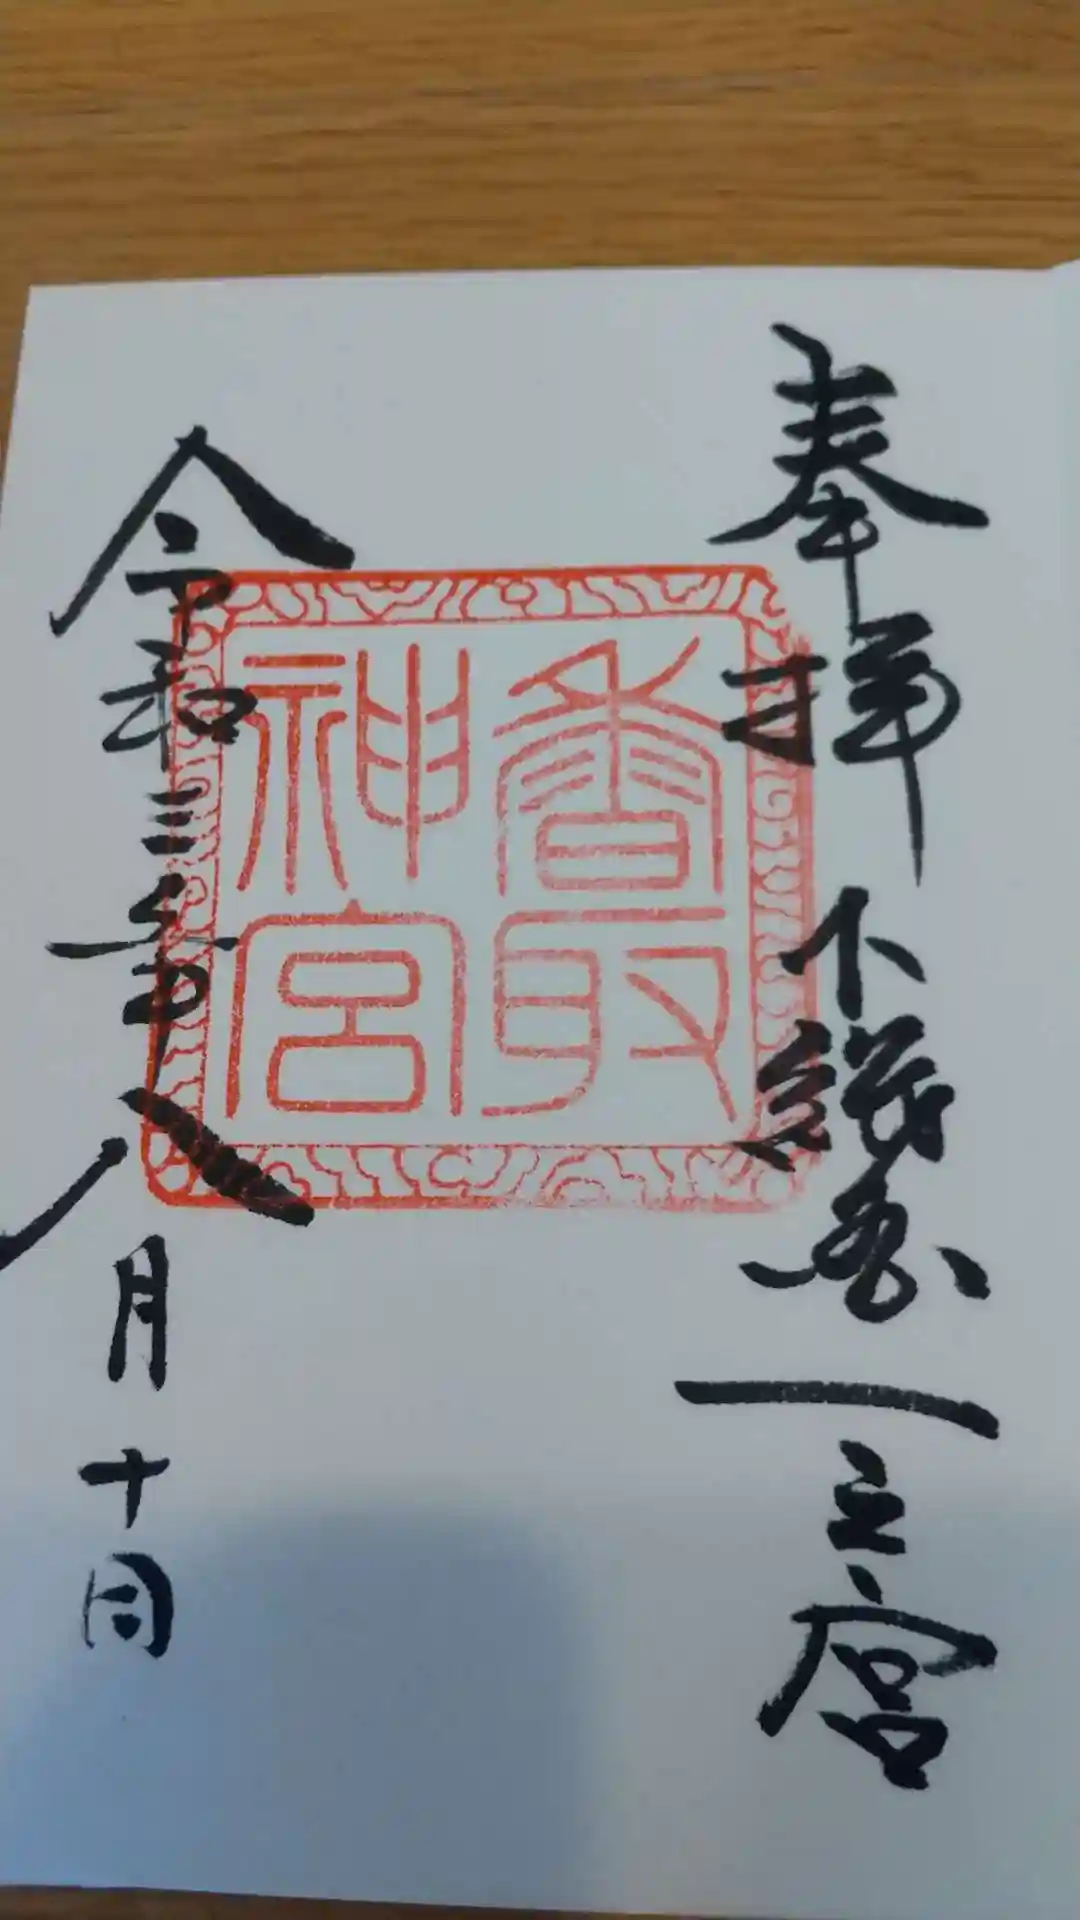 奉拝 下総国一之宮
香取
神宮
令和三年八月十日